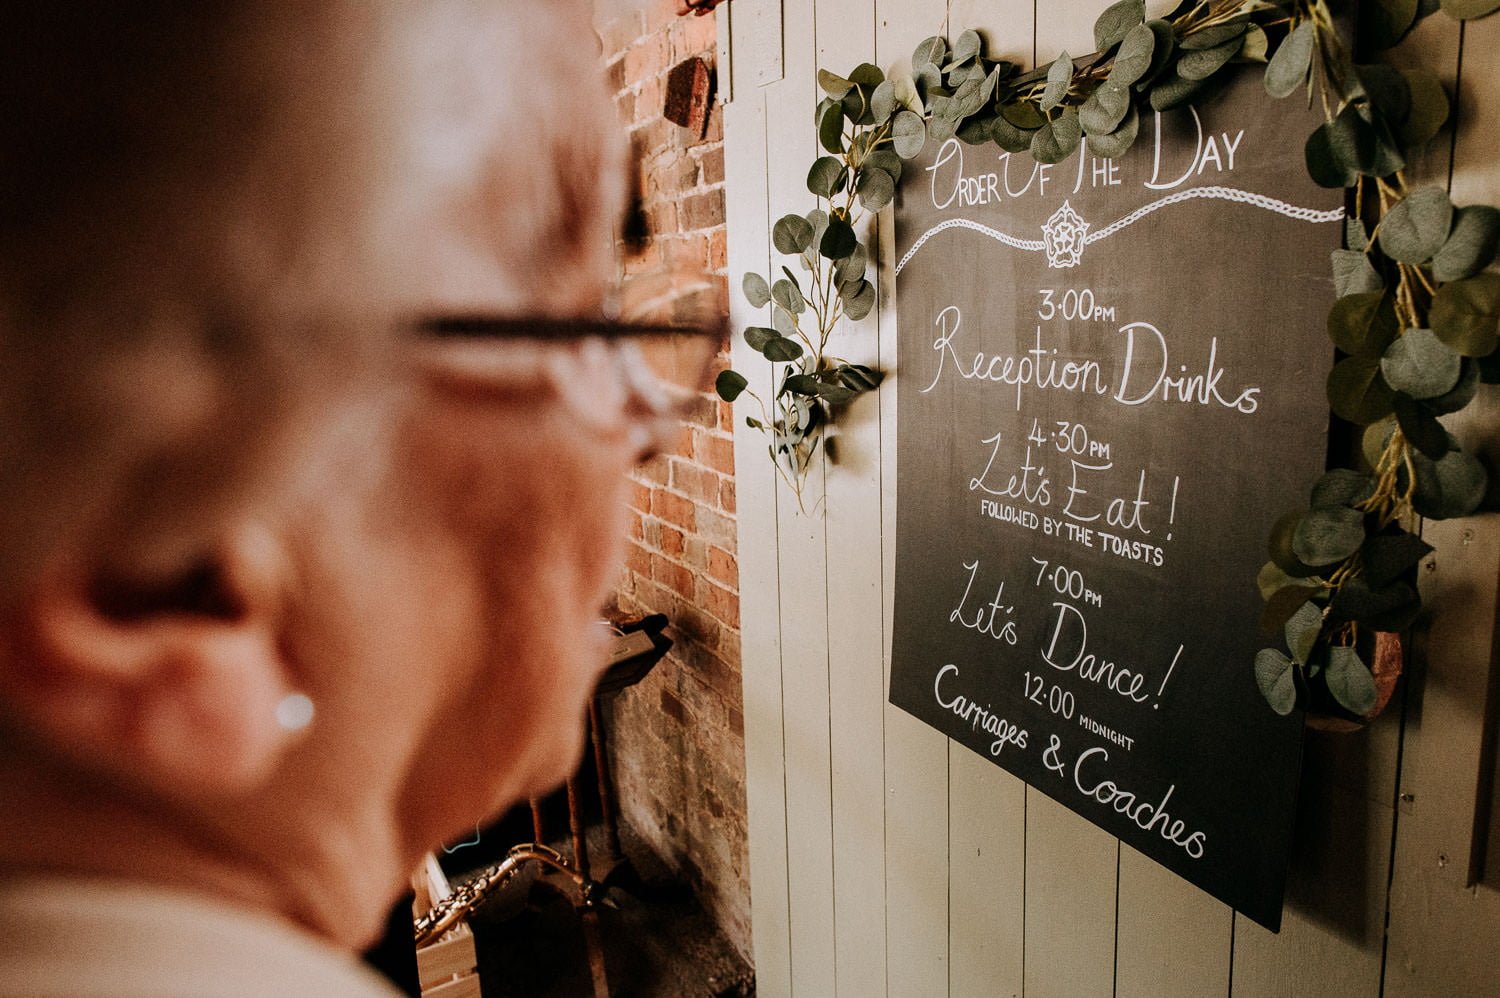 Order Of The Day
3·00PM
Reception Drinks
4:30PM
Let's Eat!
FOLLOWED BY THE TOASTS
7·00PM
Let's Dance!
12·00 MIDNIGHT
Carriages & Coaches